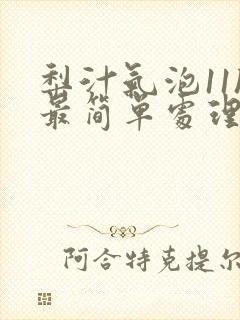 梨汁氣泡11
最简單處理
阿合特克提尔